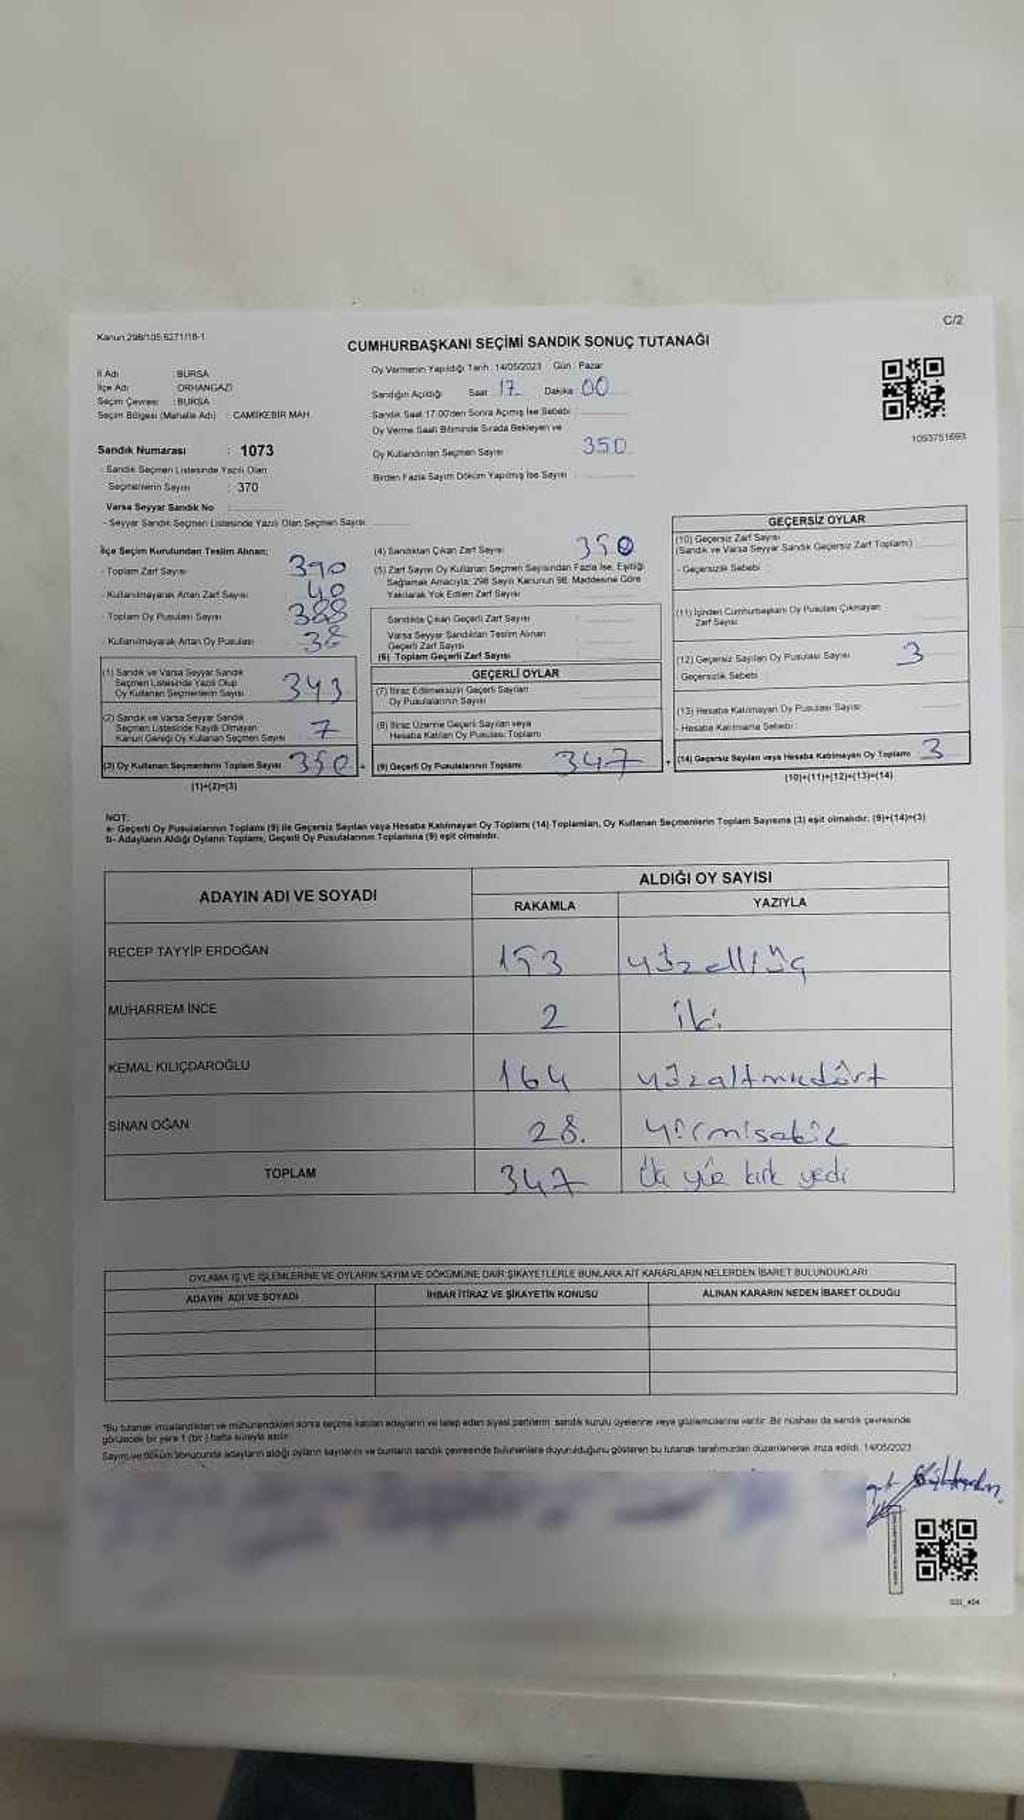 Kanun,298/105,6271/18-1
C/2
CUMHURBAŞKANI SEÇİMİ SANDIK SONUÇ TUTANAĞI
İl Adı : BURSA
İlçe Adı : ORHANGAZİ
Seçim Çevresi : BURSA
Seçim Bölgesi (Mahalle Adı) : CAMİİKEBİR MAH.
Sandık Numarası : 1073
- Sandık Seçmen Listesinde Yazılı Olan
Seçmenlerin Sayısı : 370
Varsa Seyyar Sandık No
- Seyyar Sandık Seçmen Listesinde Yazılı Olan Seçmen Sayısı
Oy Vermenin Yapıldığı Tarih : 14/05/2023 Gün : Pazar
Sandığın Açıldığı Saat 17 Dakika 00
Sandık Saat 17.00'den Sonra Açılmış İse Sebebi :
Oy Verme Saati Bitiminde Sırada Bekleyen ve
Oy Kullandırılan Seçmen Sayısı 350
Birden Fazla Sayım Döküm Yapılmış İse Sayısı
1093751693
İlçe Seçim Kurulundan Teslim Alınan;
- Toplam Zarf Sayısı 390
- Kullanılmayarak Artan Zarf Sayısı 40
- Toplam Oy Pusulası Sayısı 388
- Kullanılmayarak Artan Oy Pusulası 38
(1) Sandık ve Varsa Seyyar Sandık
Seçmen Listesinde Yazılı Olup
Oy Kullanan Seçmenlerin Sayısı 343
(2) Sandık ve Varsa Seyyar Sandık
Seçmen Listesinde Kayıtlı Olmayan
Kanun Gereği Oy Kullanan Seçmen Sayısı 7
(3) Oy Kullanan Seçmenlerin Toplam Sayısı 350
(1)+(2)=(3)
(4) Sandıktan Çıkan Zarf Sayısı 350
(5) Zarf Sayısı Oy Kullanan Seçmen Sayısından Fazla İse, Eşitliği
Sağlamak Amacıyla; 298 Sayılı Kanunun 98. Maddesine Göre
Yakılarak Yok Edilen Zarf Sayısı
Sandıkta Çıkan Geçerli Zarf Sayısı
Varsa Seyyar Sandıktan Teslim Alınan
Geçerli Zarf Sayısı
(6) Toplam Geçerli Zarf Sayısı
GEÇERLİ OYLAR
(7) İtiraz Edilmeksizin Geçerli Sayılan
Oy Pusulalarının Sayısı
(8) İtiraz Üzerine Geçerli Sayılan veya
Hesaba Katılan Oy Pusulası Toplamı
(9) Geçerli Oy Pusulalarının Toplamı 347
GEÇERSİZ OYLAR
(10) Geçersiz Zarf Sayısı
(Sandık ve Varsa Seyyar Sandık Geçersiz Zarf Toplamı)
- Geçersizlik Sebebi :
(11) İçinden Cumhurbaşkanı Oy Pusulası Çıkmayan
Zarf Sayısı
(12) Geçersiz Sayılan Oy Pusulası Sayısı 3
Geçersizlik Sebebi
(13) Hesaba Katılmayan Oy Pusulası Sayısı
- Hesaba Katılmama Sebebi :
(14) Geçersiz Sayılan veya Hesaba Katılmayan Oy Toplamı 3
(10)+(11)+(12)+(13)=(14)
NOT:
a- Geçerli Oy Pusulalarının Toplamı (9) ile Geçersiz Sayılan veya Hesaba Katılmayan Oy Toplamı (14) Toplamları, Oy Kullanan Seçmenlerin Toplam Sayısına (3) eşit olmalıdır. (9)+(14)=(3)
b- Adayların Aldığı Oyların Toplamı, Geçerli Oy Pusulalarının Toplamına (9) eşit olmalıdır.
ADAYIN ADI VE SOYADI
ALDIĞI OY SAYISI
RAKAMLA YAZIYLA
RECEP TAYYİP ERDOĞAN 153 yüzelliüç
MUHARREM İNCE 2 iki
KEMAL KILIÇDAROĞLU 164 yüzaltmışdört
SİNAN OĞAN 28. yirmisekiz
TOPLAM 347 Üç yüz kırk yedi
OYLAMA İŞ VE İŞLEMLERİNE VE OYLARIN SAYIM VE DÖKÜMÜNE DAİR ŞİKAYETLERLE BUNLARA AİT KARARLARIN NELERDEN İBARET BULUNDUKLARI
ADAYIN ADI VE SOYADI İHBAR İTİRAZ VE ŞİKAYETİN KONUSU ALINAN KARARIN NEDEN İBARET OLDUĞU
*Bu tutanak imzalandıktan ve mühürlendikten sonra seçime katılan adayların ve talep eden siyasi partilerin sandık kurulu üyelerine veya gözlemcilerine verilir. Bir nüshası da sandık çevresinde
görülecek bir yere 1 (bir) hafta süreyle asılır.
Sayım ve döküm sonucunda adayların aldığı oyların sayılarını ve bunların sandık çevresinde bulunanlara duyurulduğunu gösteren bu tutanak tarafımızdan düzenlenerek imza edildi. 14/05/2023